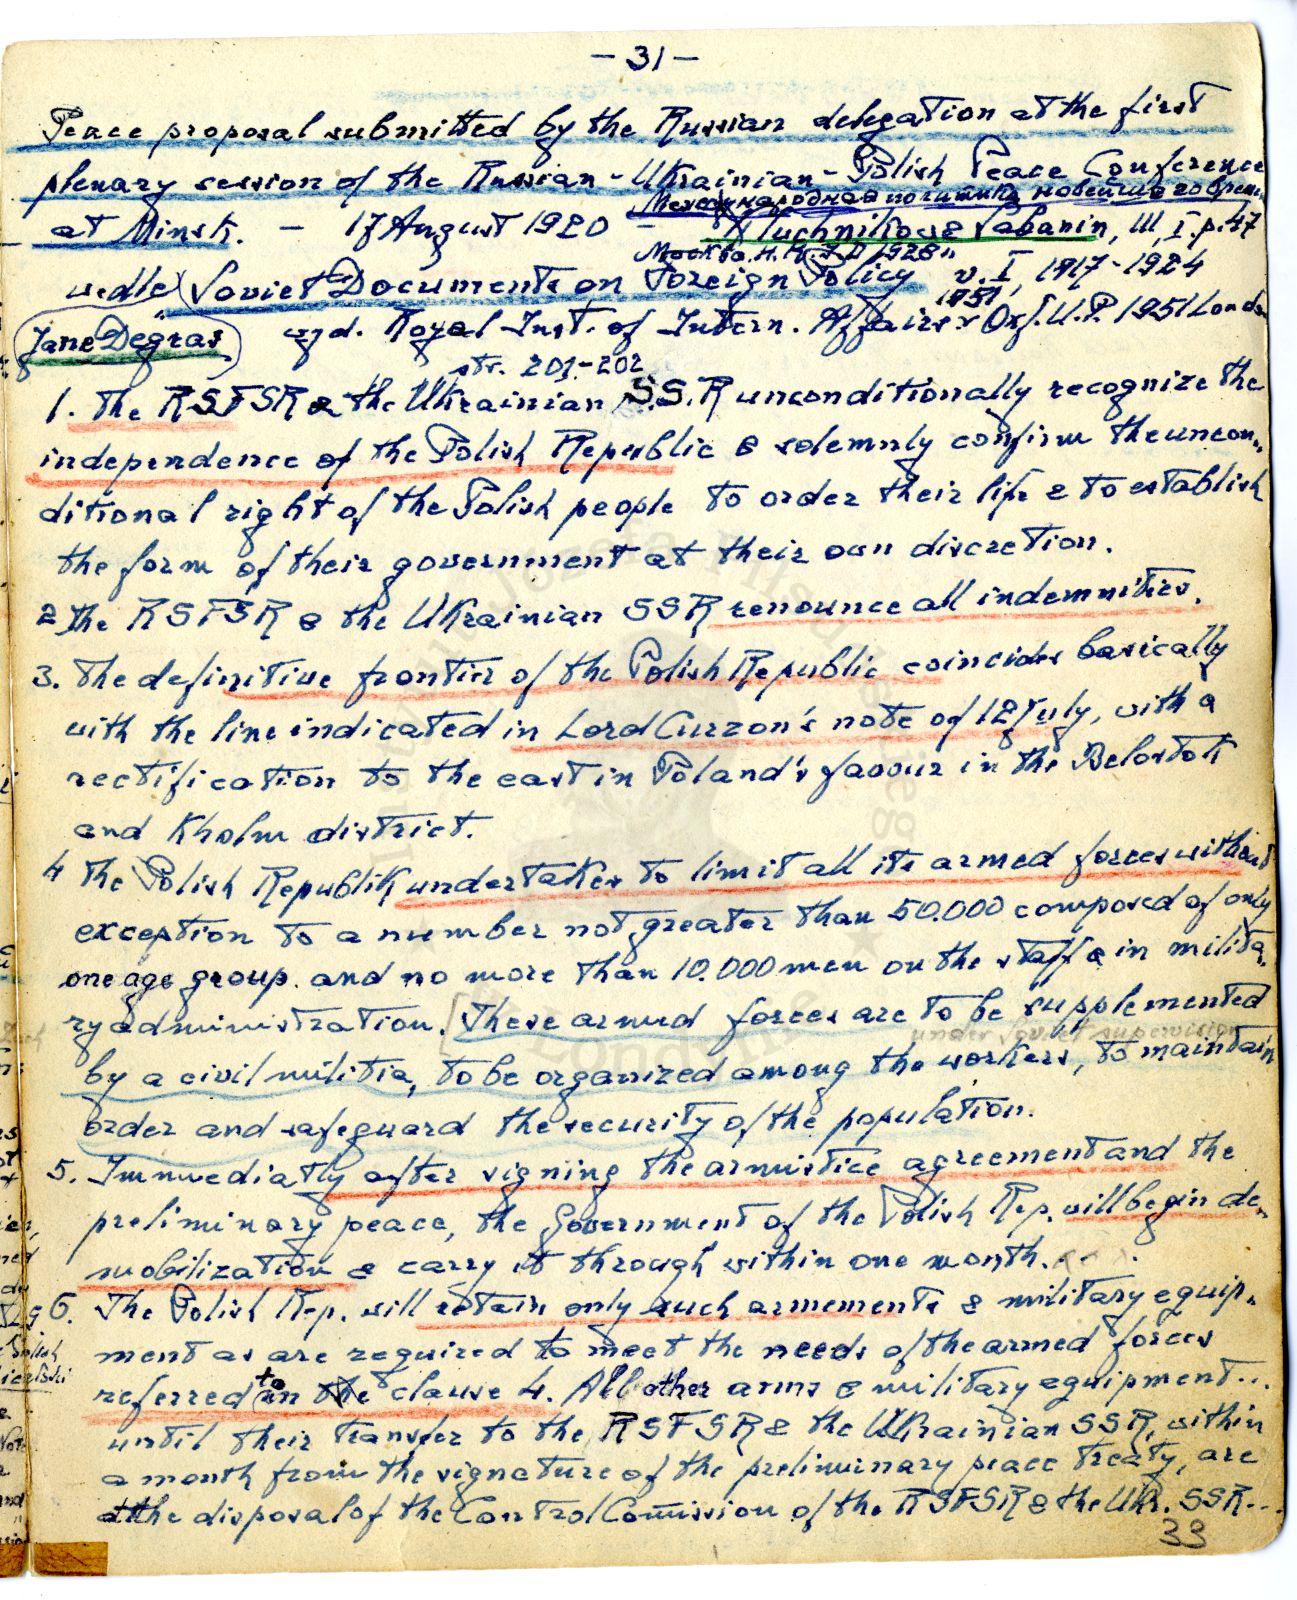 - 31 -
Peace proposal submitted by the Russian delegation at the first
plenary session of the Russian - Ukrainian - Polish Peace Conference
Международная политика новейшего времени
at Minsk. - 17 August 1920 - Kluchnikov & Sabanin, III, I. p. 47
Москва. Н.К.И.Д 1928.
wedle Soviet Documents on Foreign Policy v. I, 1917-1924
1951,
Jane Degras wyd. Royal Inst. of Intern. Affairs & Oxf. U.P. 1951 London
str. 201-202
1. The RSFSR & the Ukrainian S.S.R unconditionally recognize the
independence of the Polish Republic & solemnly confirm the uncon-
ditional right of the Polish people to order their life & to establish
the form of their government at their own discretion.
2 The RSFSR & the Ukrainian SSR renounce all indemnities.
3. The definitive frontier of the Polish Republic coincides basically
with the line indicated in Lord Curzon's note of 12 July, with a
rectification to the east in Poland's favour in the Belostok
and Kholm district.
4 The Polish Republik undertakes to limit all its armed forces without
exception to a number not greater than 50.000 composed of only
one age group. and no more than 10.000 men on the staff & in milita-
ry administration. [These armed forces are to be supplemented
under soviet supervision
by a civil militia, to be organized among the workers, to maintain
order and safeguard the security of the population.
5. Immediatly after signing the armistice agreement and the
preliminary peace, the Government of the Polish Rep. will begin de-
mobilization & carry it through within one month. . .
6. The Polish Rep. will retain only such armements & military equip-
ment as are required to meet the needs of the armed forces
referred to in the clause 4. All other arms & military equipment...
until their transfer to the RSFSR & the Ukrainian SSR, within
a month from the signature of the preliminary peace treaty, are
at the disposal of the Control Comission of the RSFSR & the Ukr. SSR...
33
Instytut Józefa Piłsudskiego
w Londynie